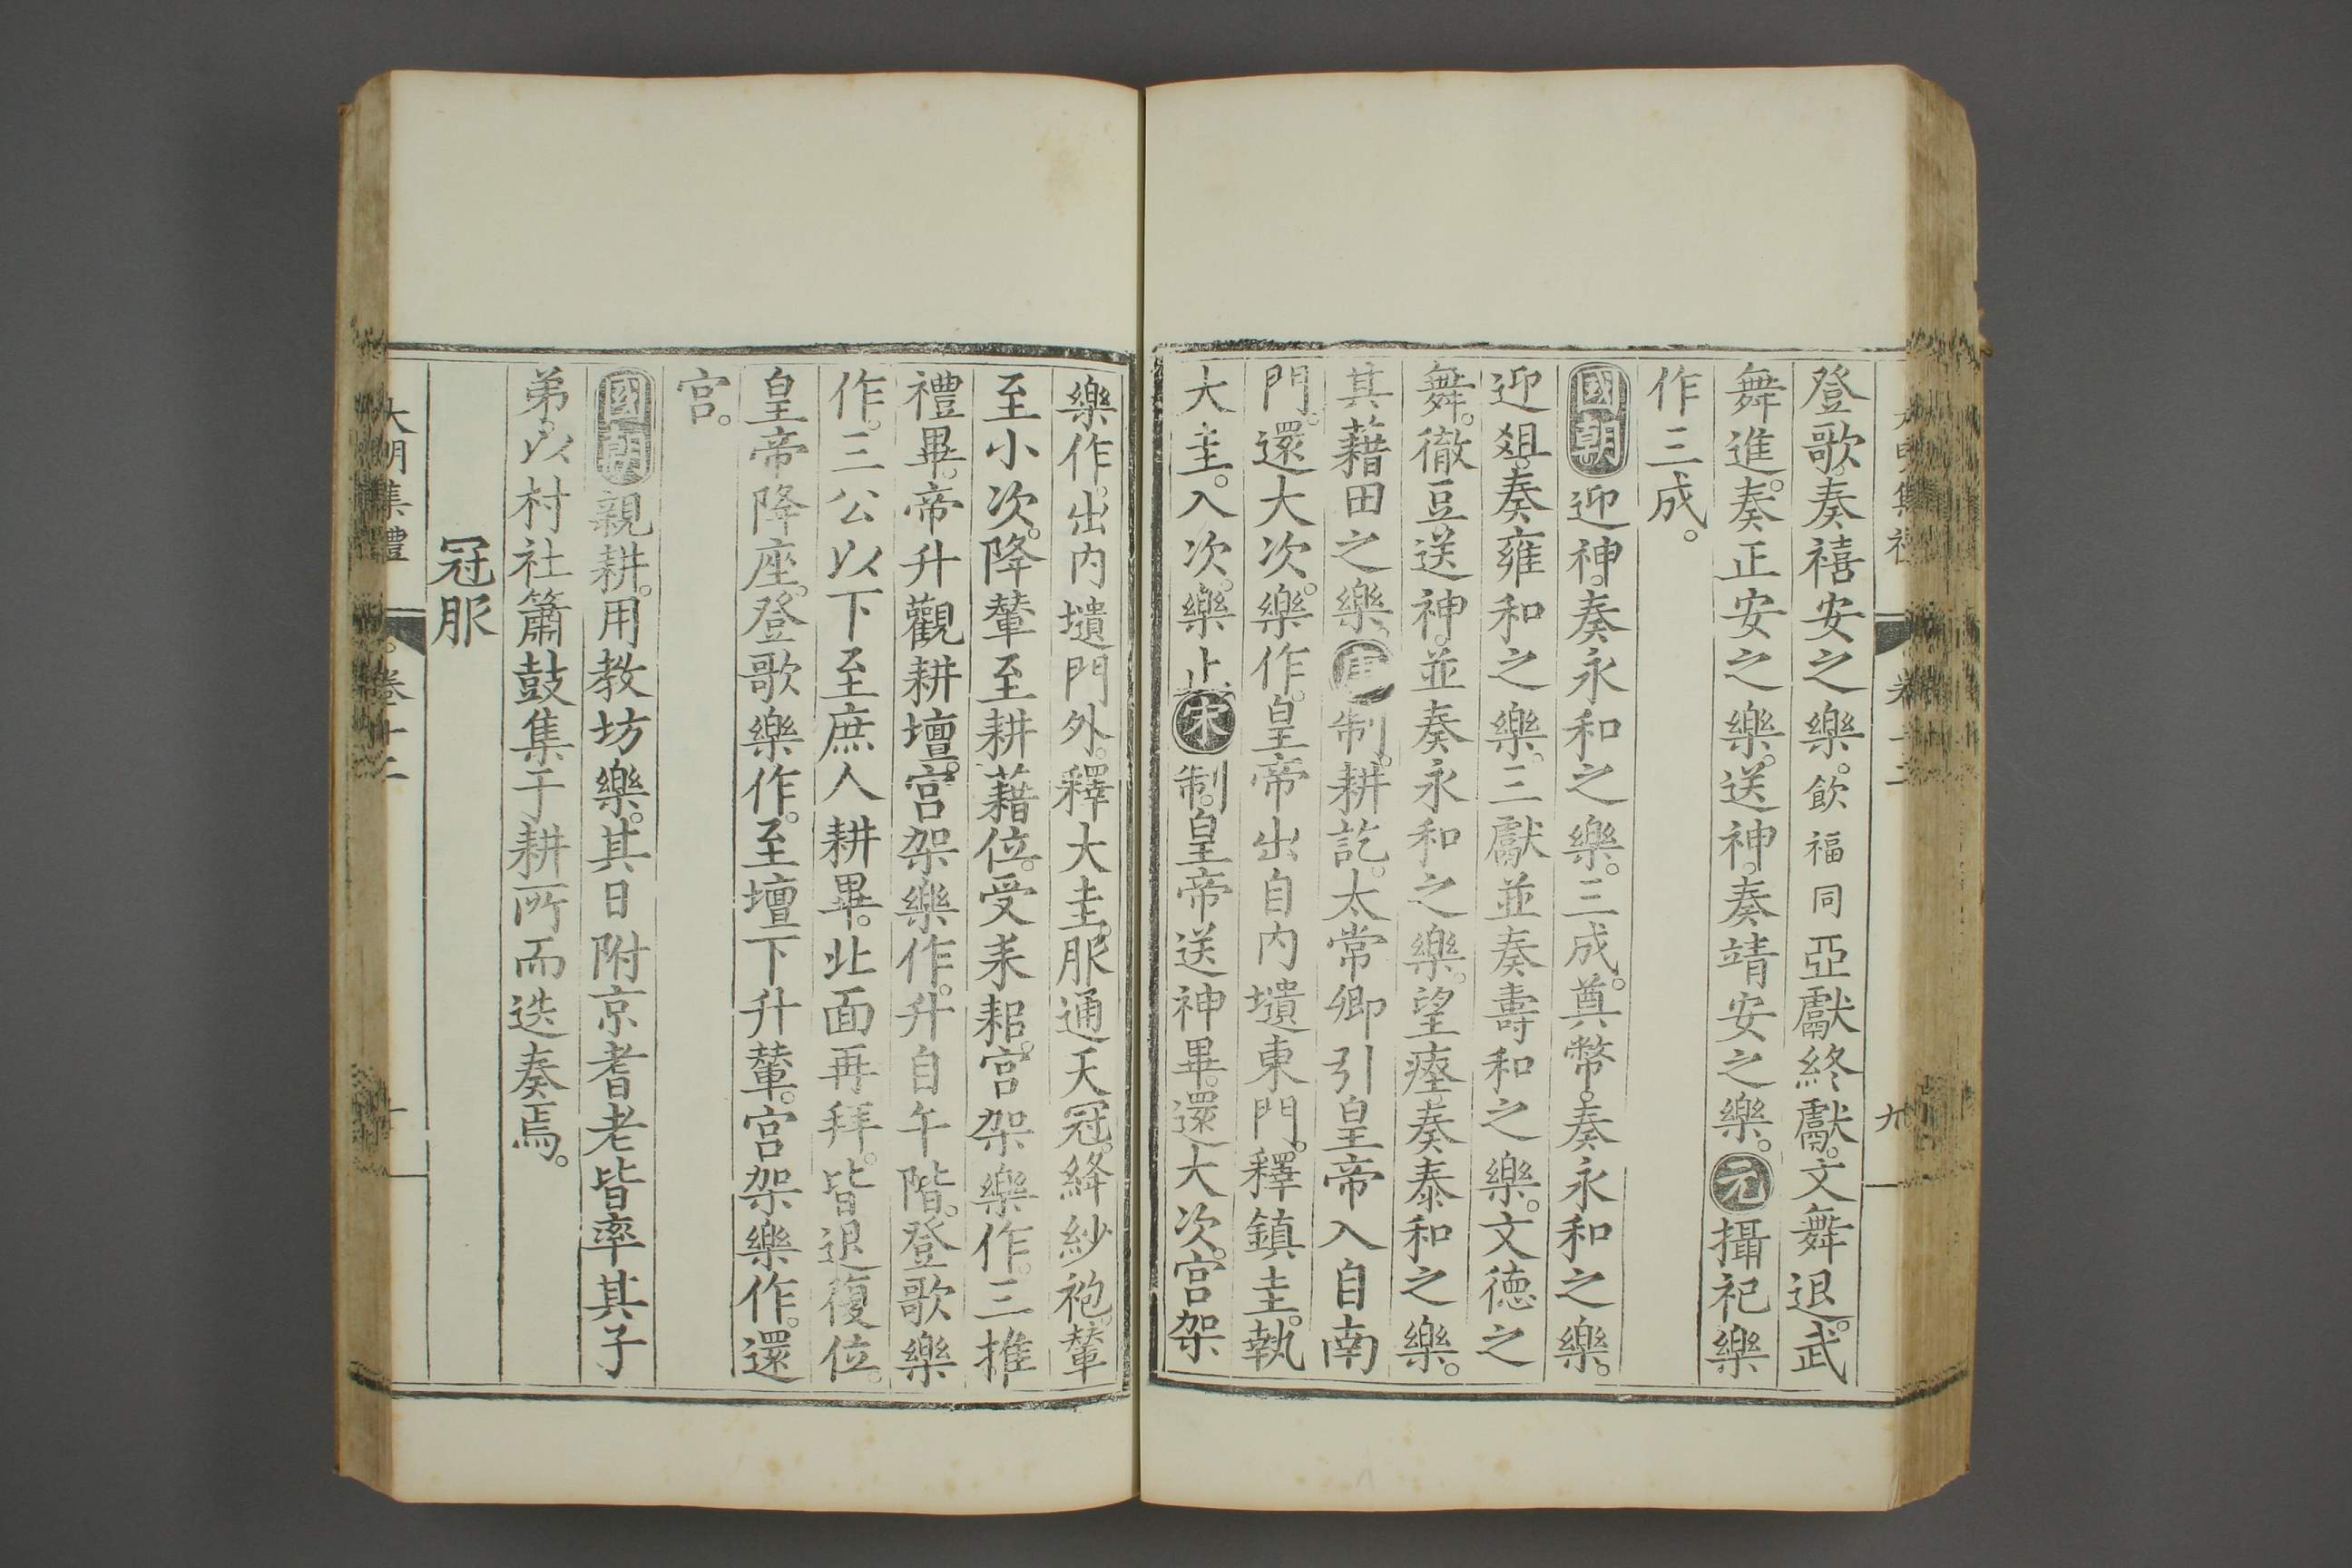 大明集禮 卷十二 九
登歌。奏禧安之樂。飲福同亞獻終獻。文舞退。武
舞進。奏正安之樂。送神。奏靖安之樂。元攝祀樂
作三成。
國朝迎神。奏永和之樂。三成。奠幣。奏永和之樂。
迎俎。奏雍和之樂。三獻並奏壽和之樂。文德之
舞。徹豆送神。並奏永和之樂。望瘞。奏泰和之樂。
其藉田之樂。唐制。耕訖。太常卿引皇帝入自南
門。還大次。樂作。皇帝出自內壝東門。釋鎮圭。執
大圭。入次。樂止。宋制。皇帝送神畢。還大次。宮架
樂作。出內壝門外。釋大圭。服通天冠。絳紗袍。輦
至小次。降輦至耕藉位。受耒耜。宮架樂作。三推
禮畢。帝升觀耕壇。宮架樂作。升自午階。登歌樂
作。三公以下至庶人耕畢。北面再拜。皆退復位。
皇帝降座。登歌樂作。至壇下升輦。宮架樂作。還
宮。
國朝親耕。用教坊樂。其日附京耆老皆率其子
弟。以村社簫鼓集于耕所而迭奏焉。
冠服
大明集禮 卷十二 十